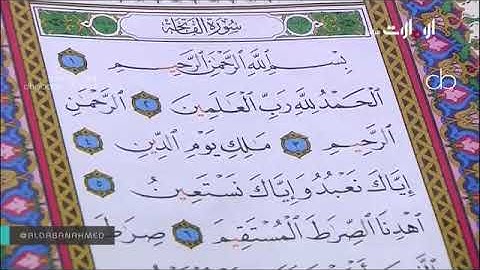 سُورَةُ الفَاتِحَةِ
بِسْمِ ٱللَّهِ ٱلرَّحْمَٰنِ ٱلرَّحِيمِ ١
ٱلْحَمْدُ لِلَّهِ رَبِّ ٱلْعَٰلَمِينَ ٢ ٱلرَّحْمَٰنِ
ٱلرَّحِيمِ ٣ مَٰلِكِ يَوْمِ ٱلدِّينِ ٤
إِيَّاكَ نَعْبُدُ وَإِيَّاكَ نَسْتَعِينُ ٥
ٱهْدِنَا ٱلصِّرَٰطَ ٱلْمُسْتَقِيمَ ٦ صِرَٰطَ
@ALDABANAHMED